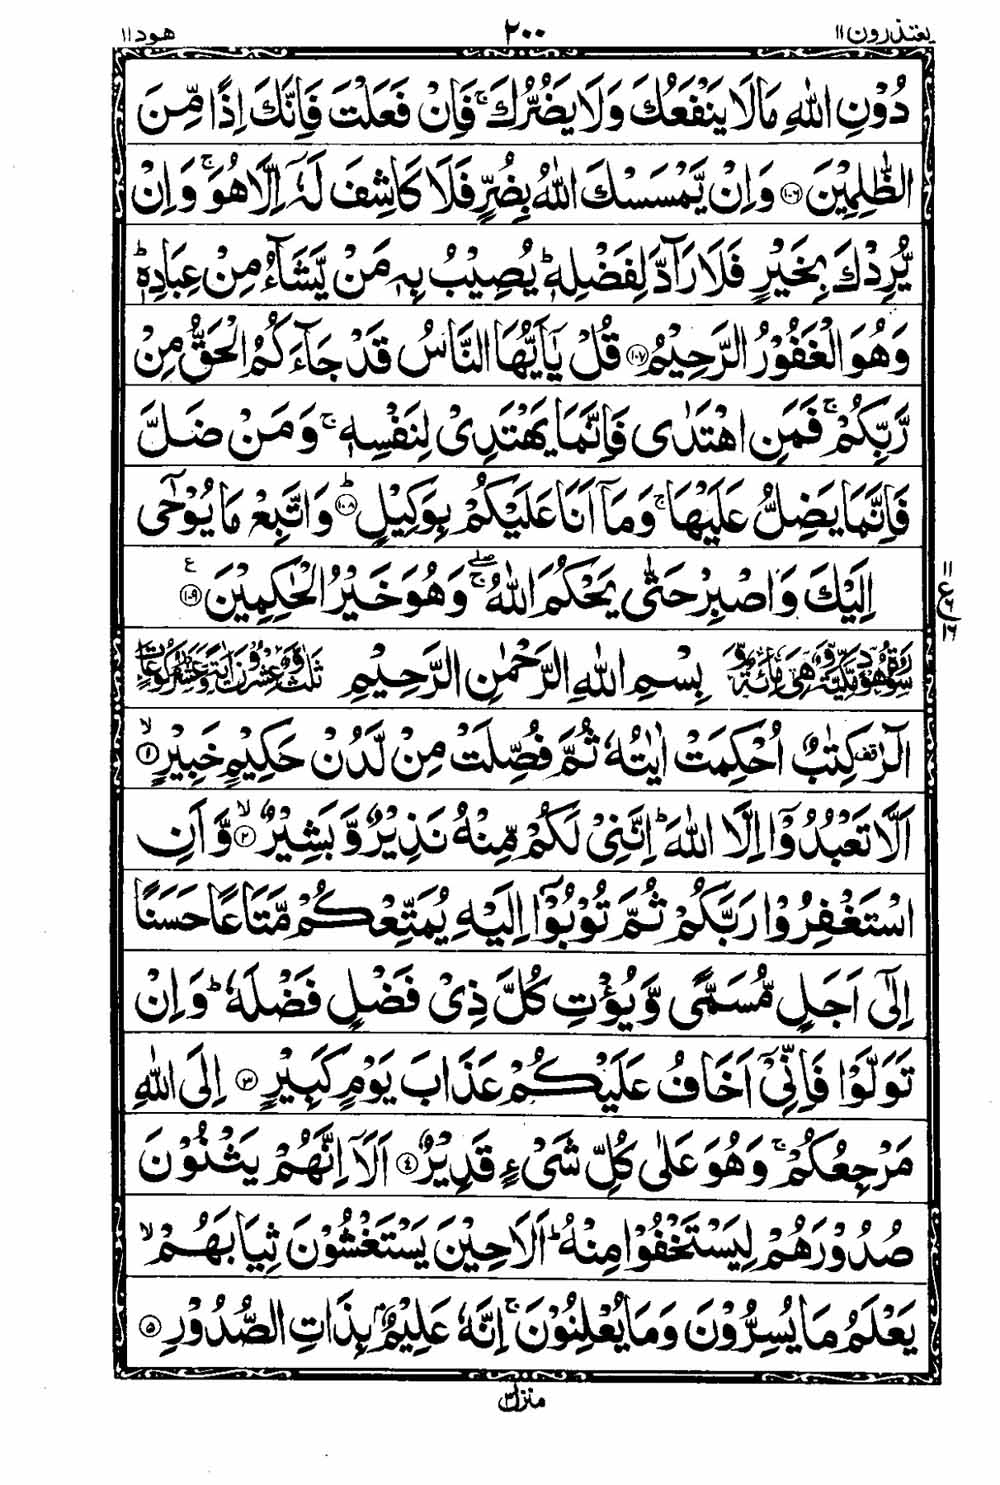 یعتذرون ۱۱
۲۰۰
ھود ۱۱
دُوْنِ اللّٰهِ مَا لَا یَنْفَعُكَ وَلَا یَضُرُّكَ ۚ فَاِنْ فَعَلْتَ فَاِنَّكَ اِذًا مِّنَ
الظّٰلِمِیْنَ ﴿۱۰۶﴾ وَاِنْ یَّمْسَسْكَ اللّٰهُ بِضُرٍّ فَلَا كَاشِفَ لَهٗۤ اِلَّا هُوَ ۚ وَاِنْ
یُّرِدْكَ بِخَیْرٍ فَلَا رَآدَّ لِفَضْلِهٖ ؕ یُصِیْبُ بِهٖ مَنْ یَّشَآءُ مِنْ عِبَادِهٖ ؕ
وَهُوَ الْغَفُوْرُ الرَّحِیْمُ ﴿۱۰۷﴾ قُلْ یٰۤاَیُّهَا النَّاسُ قَدْ جَآءَكُمُ الْحَقُّ مِنْ
رَّبِّكُمْ ۚ فَمَنِ اهْتَدٰی فَاِنَّمَا یَهْتَدِیْ لِنَفْسِهٖ ۚ وَمَنْ ضَلَّ
فَاِنَّمَا یَضِلُّ عَلَیْهَا ۚ وَمَاۤ اَنَا عَلَیْكُمْ بِوَكِیْلٍ ﴿۱۰۸﴾ؕ وَاتَّبِعْ مَا یُوْحٰۤی
اِلَیْكَ وَاصْبِرْ حَتّٰی یَحْكُمَ اللّٰهُ ۚۖ وَهُوَ خَیْرُ الْحٰكِمِیْنَ ﴿۱۰۹﴾ ع
۱۱
ع ۶
۱۶
سورة هود مكية وهى مائة و بِسْمِ اللّٰهِ الرَّحْمٰنِ الرَّحِیْمِ ثلث وعشرون اية وعشر ركوعات
الٓرٰ ۫ كِتٰبٌ اُحْكِمَتْ اٰیٰتُهٗ ثُمَّ فُصِّلَتْ مِنْ لَّدُنْ حَكِیْمٍ خَبِیْرٍ ﴿۱﴾ۙ
اَلَّا تَعْبُدُوْۤا اِلَّا اللّٰهَ ؕ اِنَّنِیْ لَكُمْ مِّنْهُ نَذِیْرٌ وَّبَشِیْرٌ ﴿۲﴾ۙ وَّاَنِ
اسْتَغْفِرُوْا رَبَّكُمْ ثُمَّ تُوْبُوْۤا اِلَیْهِ یُمَتِّعْكُمْ مَّتَاعًا حَسَنًا
اِلٰۤی اَجَلٍ مُّسَمًّی وَّیُؤْتِ كُلَّ ذِیْ فَضْلٍ فَضْلَهٗ ؕ وَاِنْ
تَوَلَّوْا فَاِنِّیْۤ اَخَافُ عَلَیْكُمْ عَذَابَ یَوْمٍ كَبِیْرٍ ﴿۳﴾ اِلَی اللّٰهِ
مَرْجِعُكُمْ ۚ وَهُوَ عَلٰی كُلِّ شَیْءٍ قَدِیْرٌ ﴿۴﴾ اَلَاۤ اِنَّهُمْ یَثْنُوْنَ
صُدُوْرَهُمْ لِیَسْتَخْفُوْا مِنْهُ ؕ اَلَا حِیْنَ یَسْتَغْشُوْنَ ثِیَابَهُمْ ۙ
یَعْلَمُ مَا یُسِرُّوْنَ وَمَا یُعْلِنُوْنَ ۚ اِنَّهٗ عَلِیْمٌۢ بِذَاتِ الصُّدُوْرِ ﴿۵﴾
منزل ۳